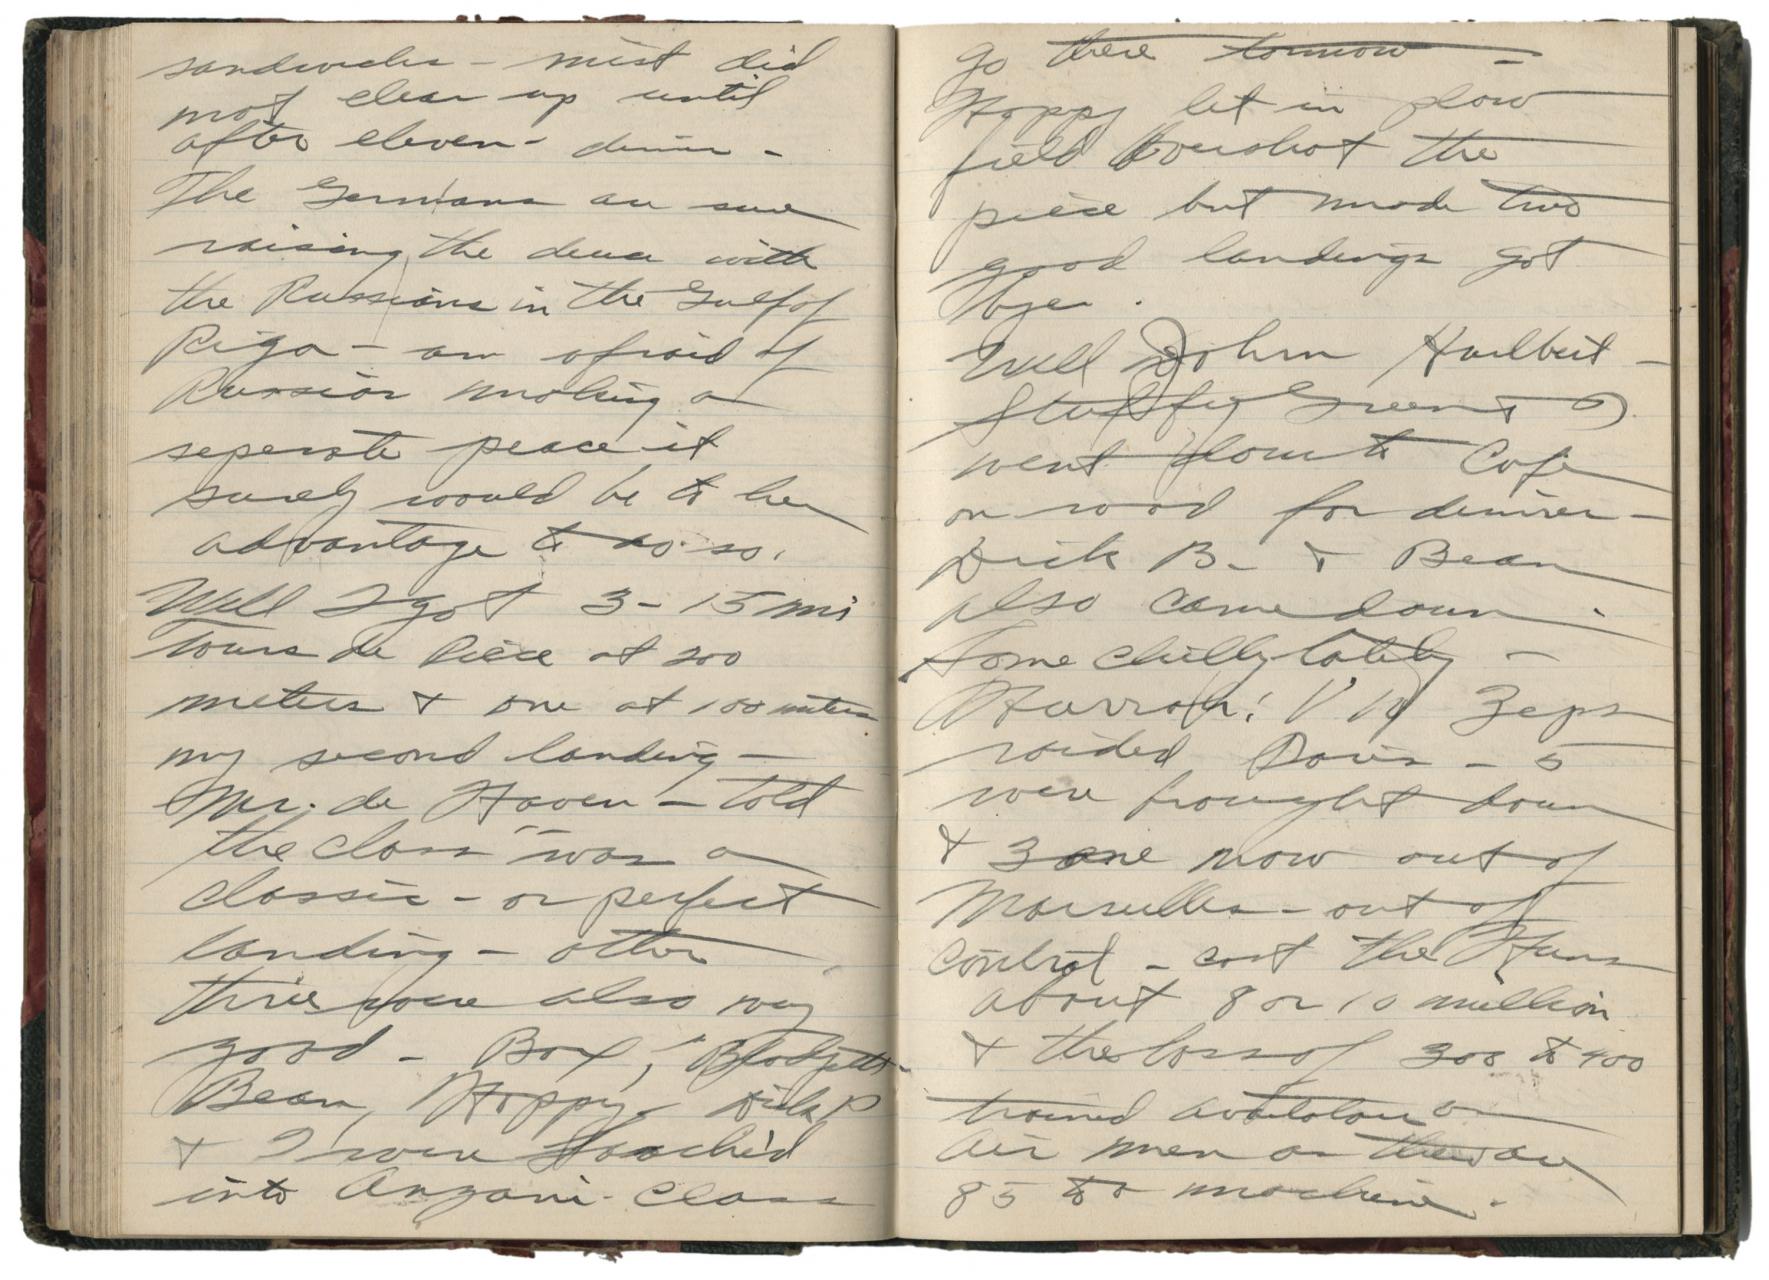 sandwiches - mist did
not clear up until
after eleven - dinner -
The Germans are sure
raising the deuce with
the Russians in the Gulf of
Riga - am afraid of
Russia making a
seperate peace it
surely would be to her
advantage to do so.
Well I got 3 - 15 mi
tours de Piece at 200
meters & one at 100 meters
my second landing -
Mr. de Haven - told
the class "was a
classic - or perfect
landing - other
three were also very
good - Box, Blodgett -
Bean, Hoppy - Dick B
& I were
into Anzani - class
go there tomorrow -
Hoppy lit in plow
field overshot the
piece but made two
good landings got
Well John Hurlbert -
Stuffy Green & I
went down to Cafe
on road for dinner -
Dick B - & Bean
also came down.
Some chilly lately -
Hurrah! 14 Zeps
raided Paris - 5
were brought down
& 3 are now out of
Marseilles - out of
control - cost the Huns
about 8 or 10 million
& the loss of 300 to 400
trained
air men as there are
85 to a machine. -